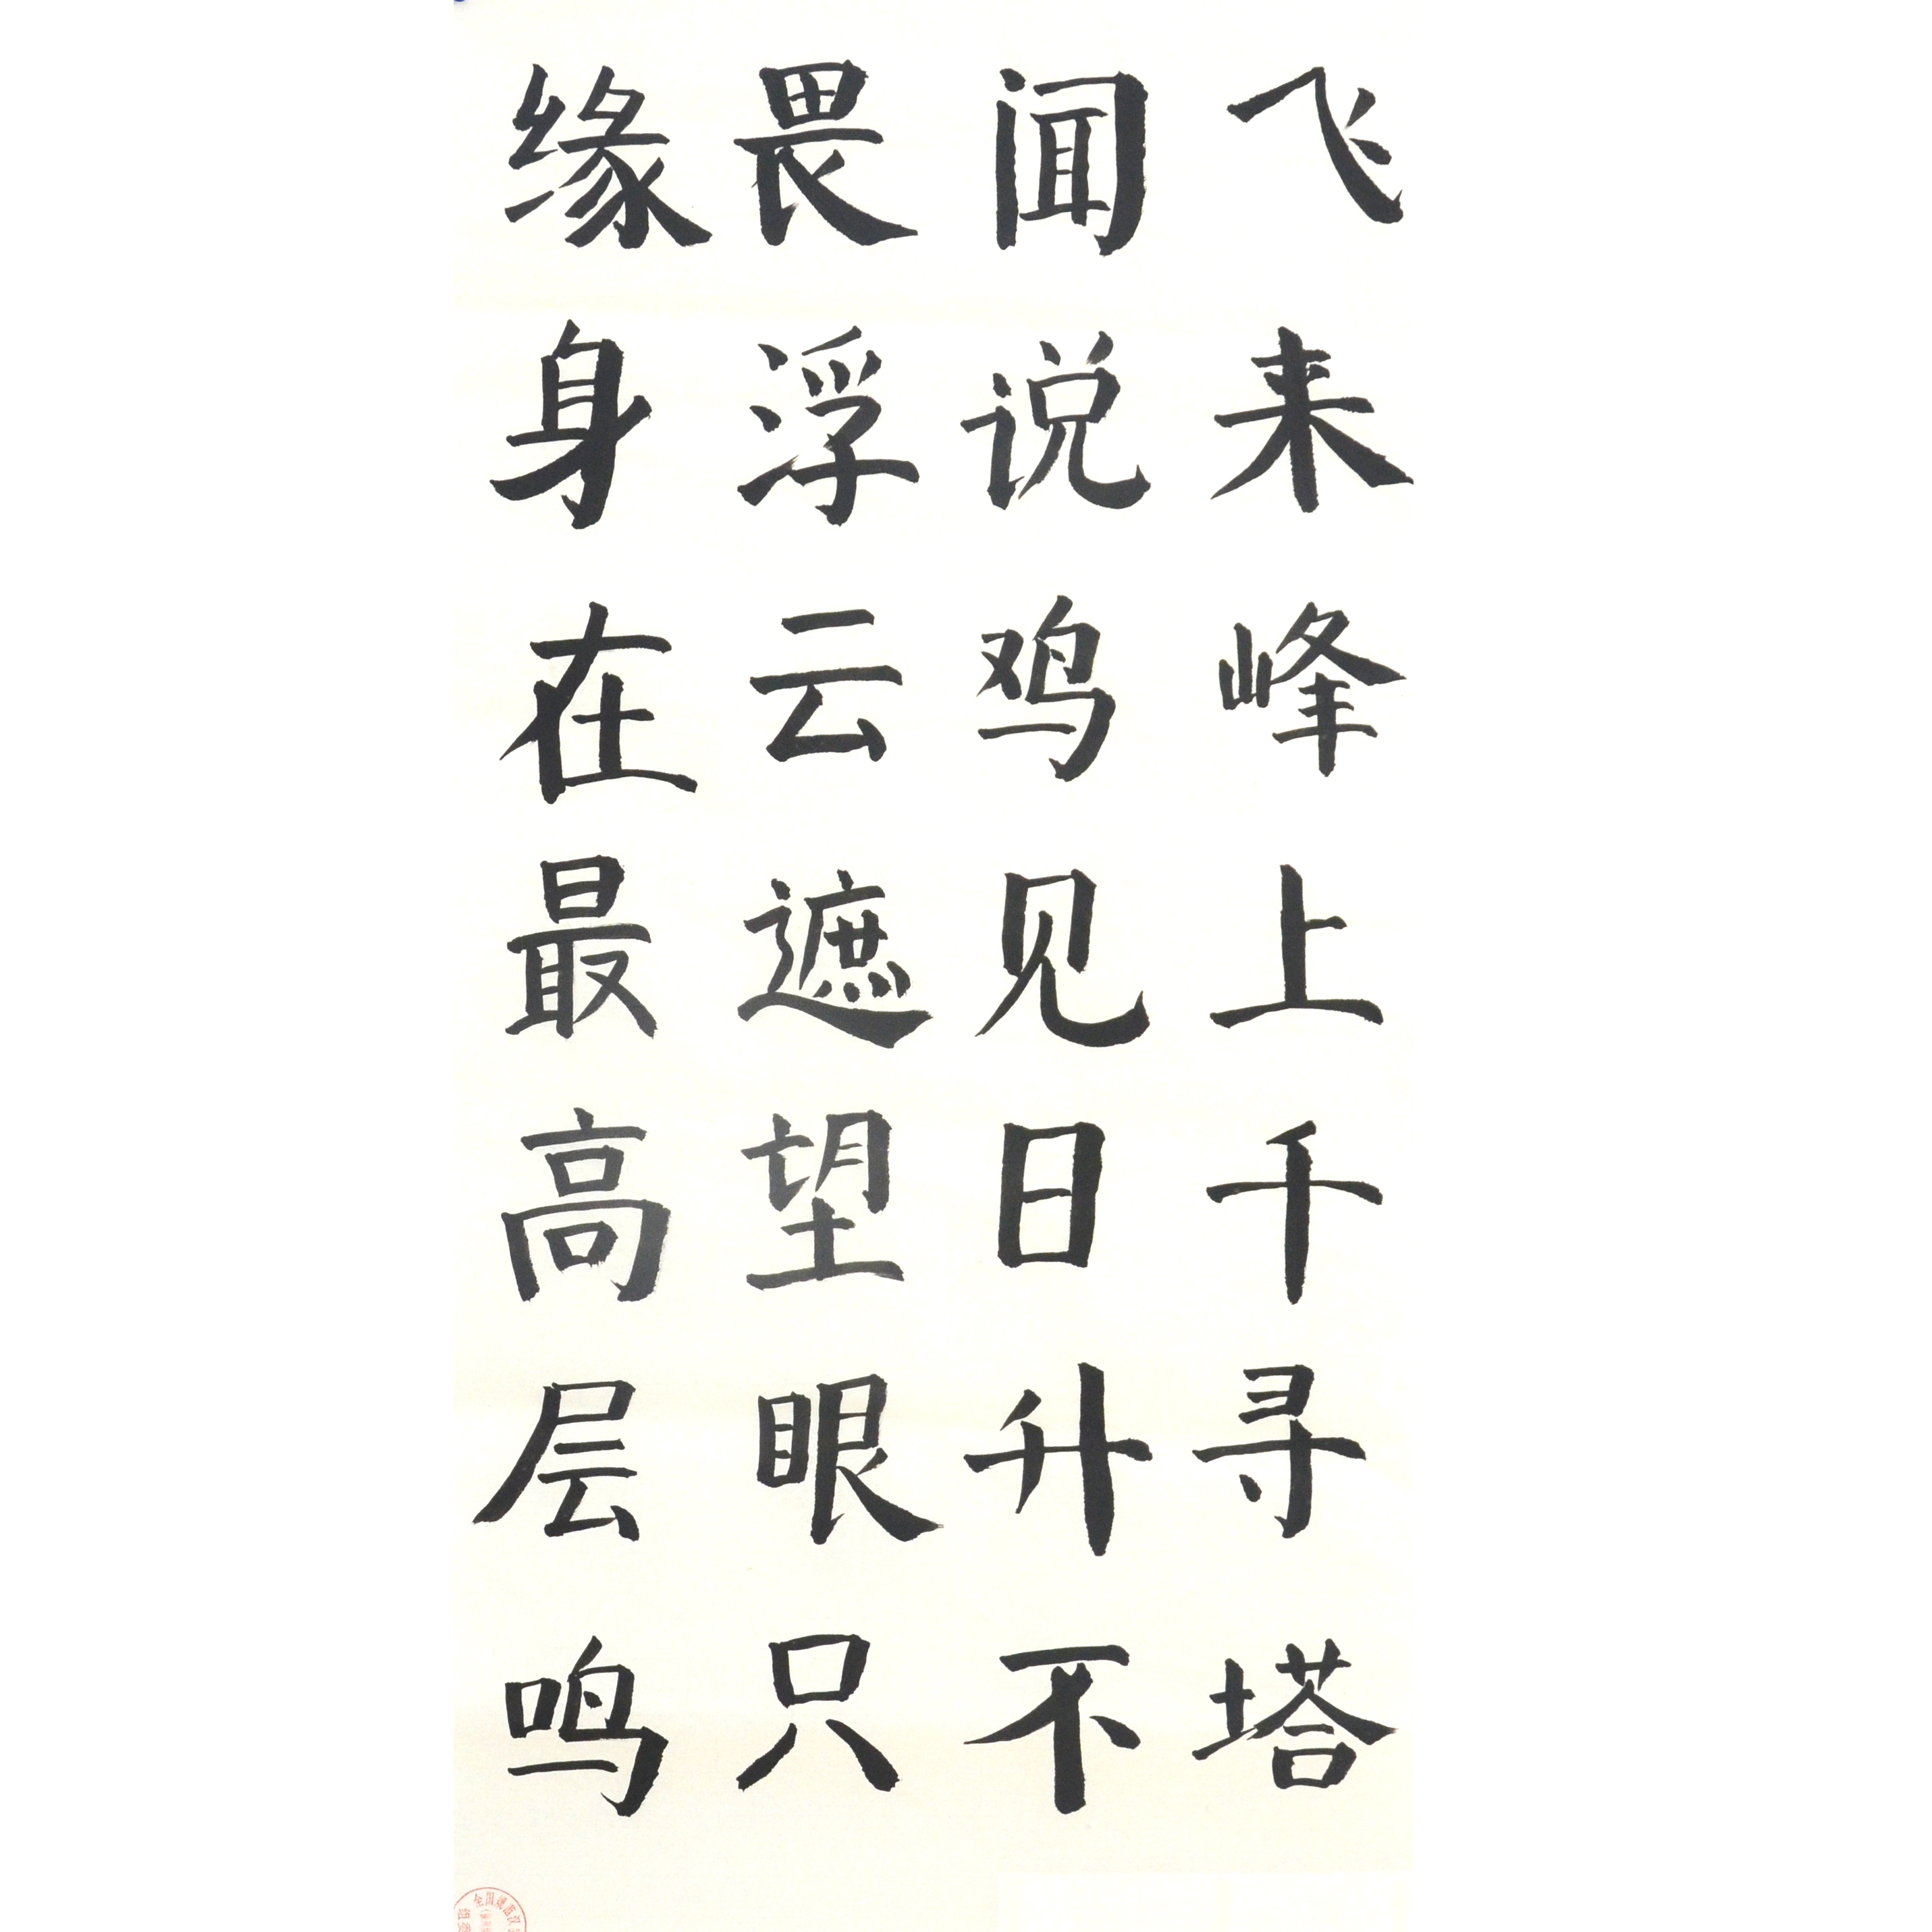 飞来峰上千寻塔
闻说鸡见日升不
畏浮云遮望眼只
缘身在最高层鸣